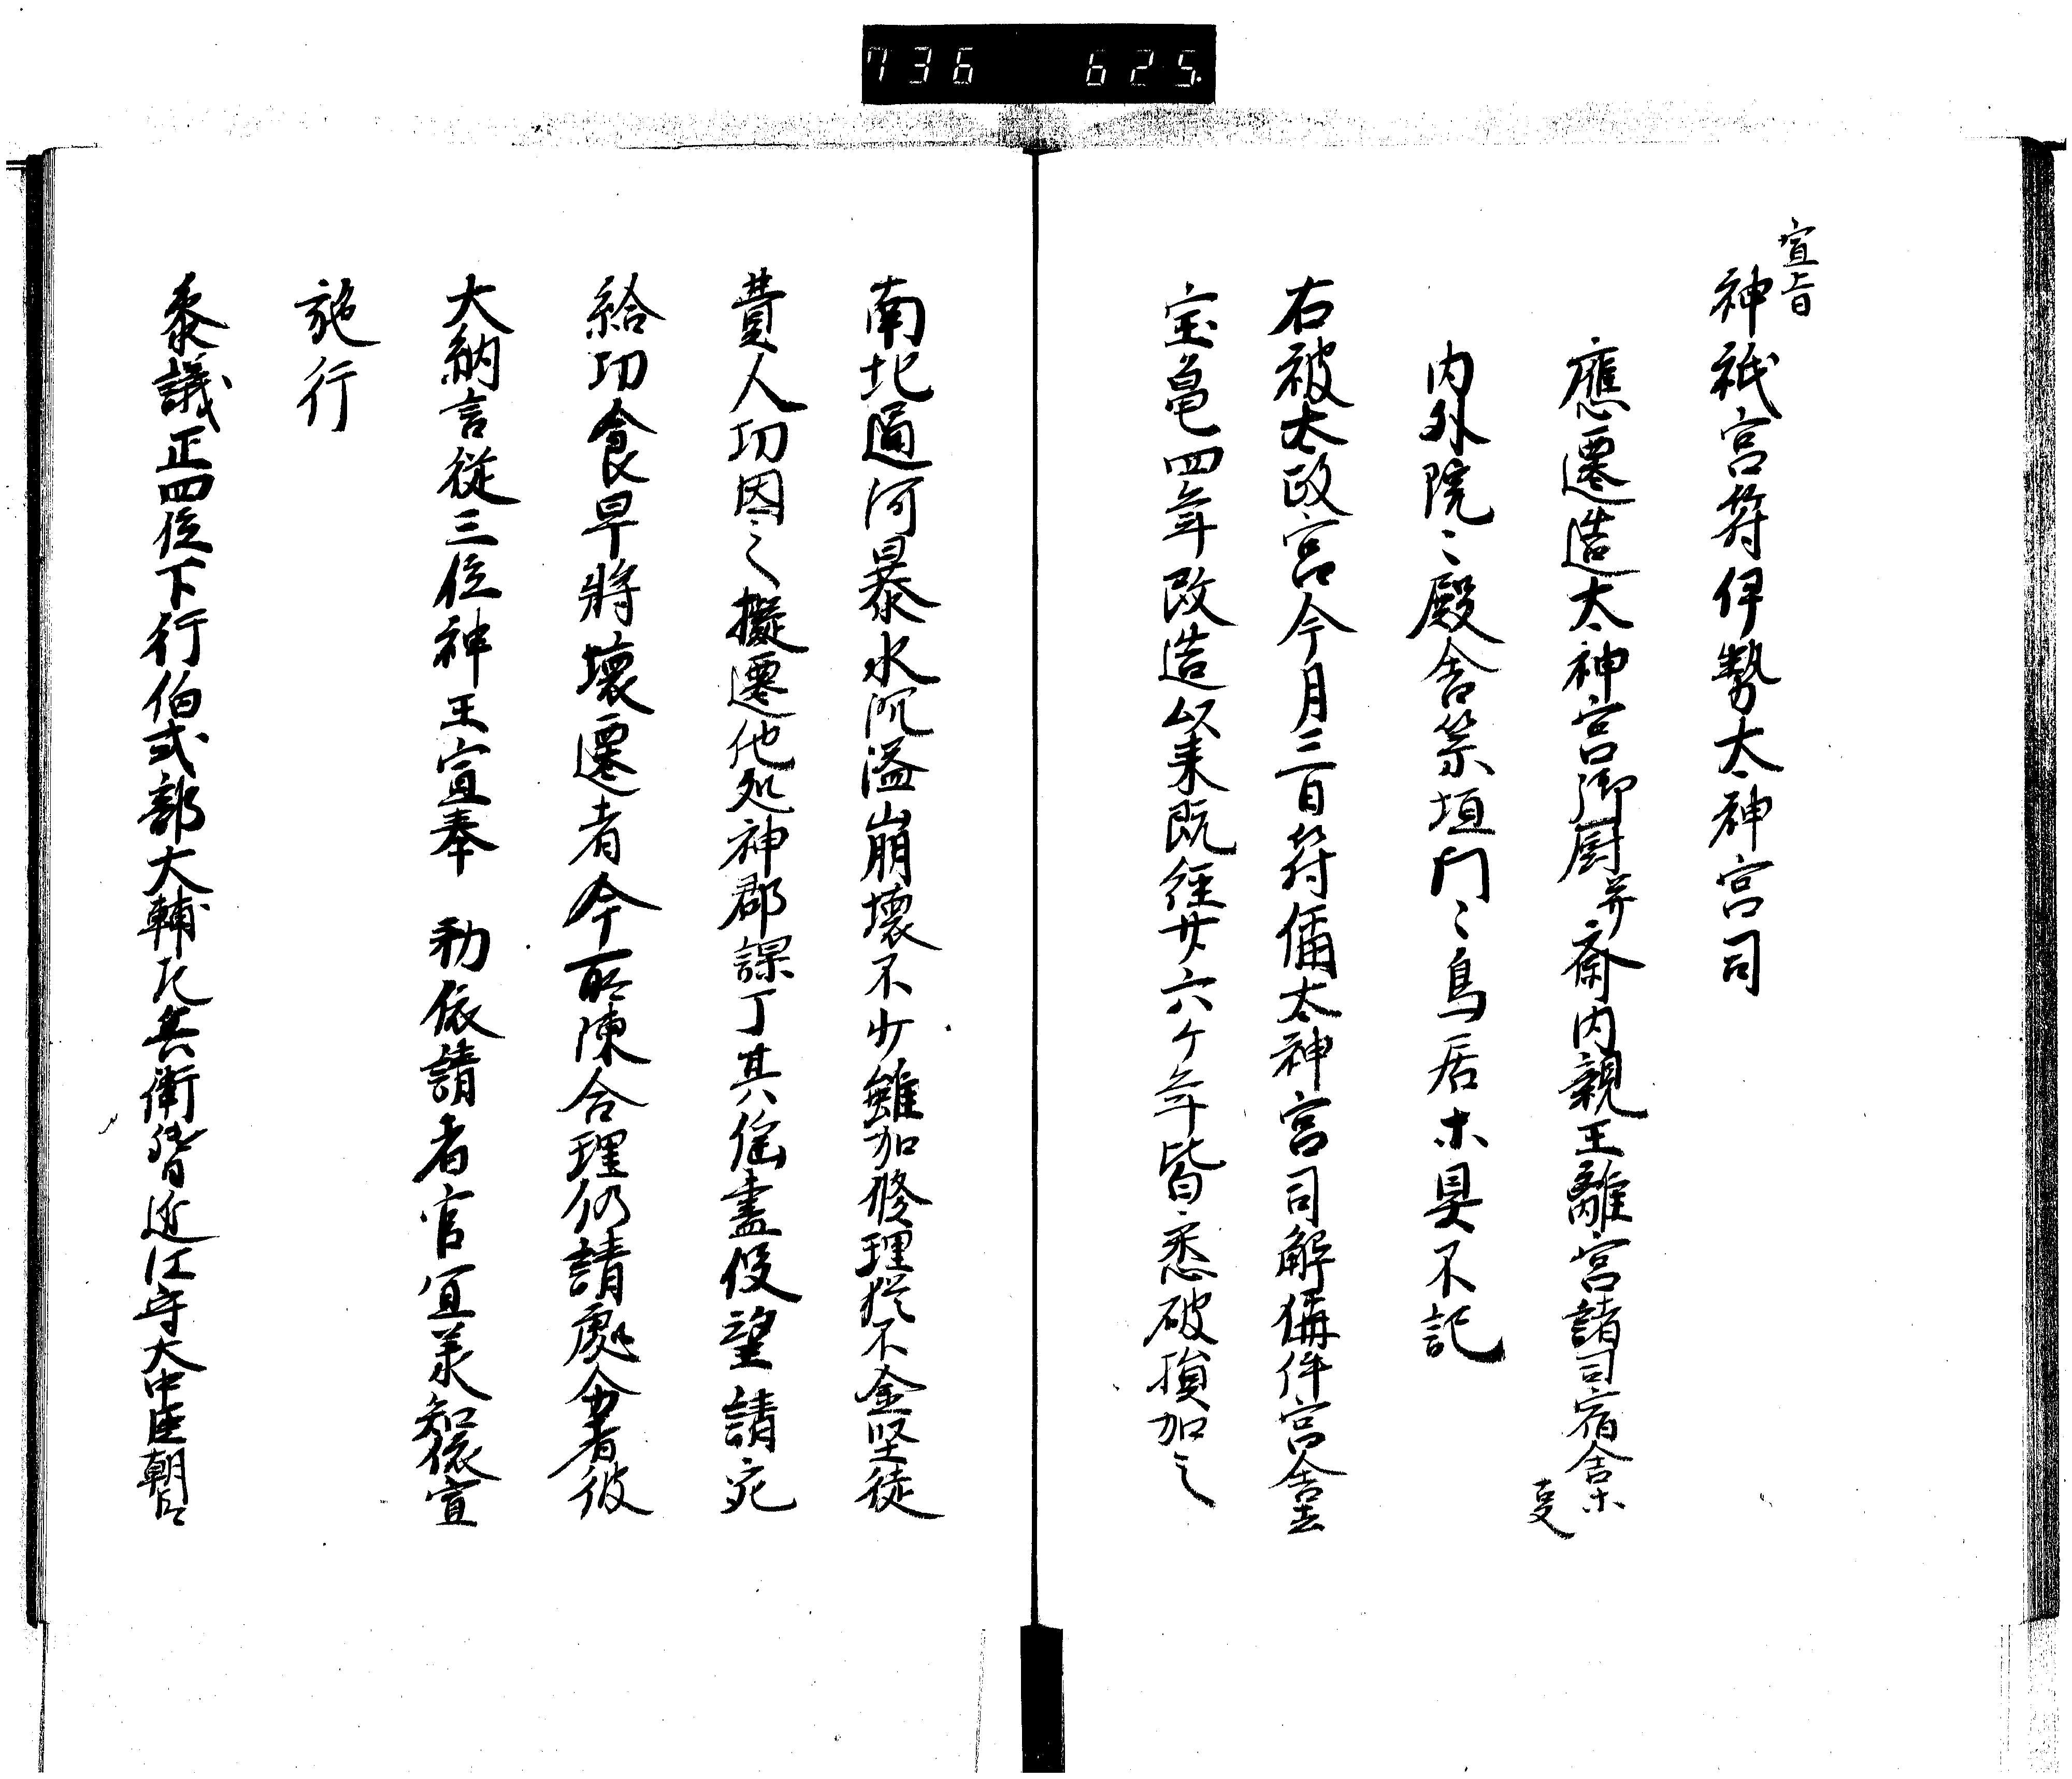 736 625
宣旨
神祇官符伊勢太神宮司
應遷造太神宮御厨并齋内親王離宮諸司宿舎木
事
内外院〻殿舎等垣門〻鳥居木具不記
右被太政官今月三日符偁太神宮司解偁件宮舎去
宝亀四年改造以来既経廿六ケ年皆悉破損加之
南北通河暴水汎溢崩壞不少雖加修理猶不全堅徒
費人功因之擬遷他処神郡課丁其徭盡役望請充
給功食早將壞遷者今所陳合理仍請處分者彼
大納言従三位神王宣奉　勅依請者官宜羕知依宣
施行
叅議正四位下行伯式部大輔左兵衛督近江守大中臣朝臣